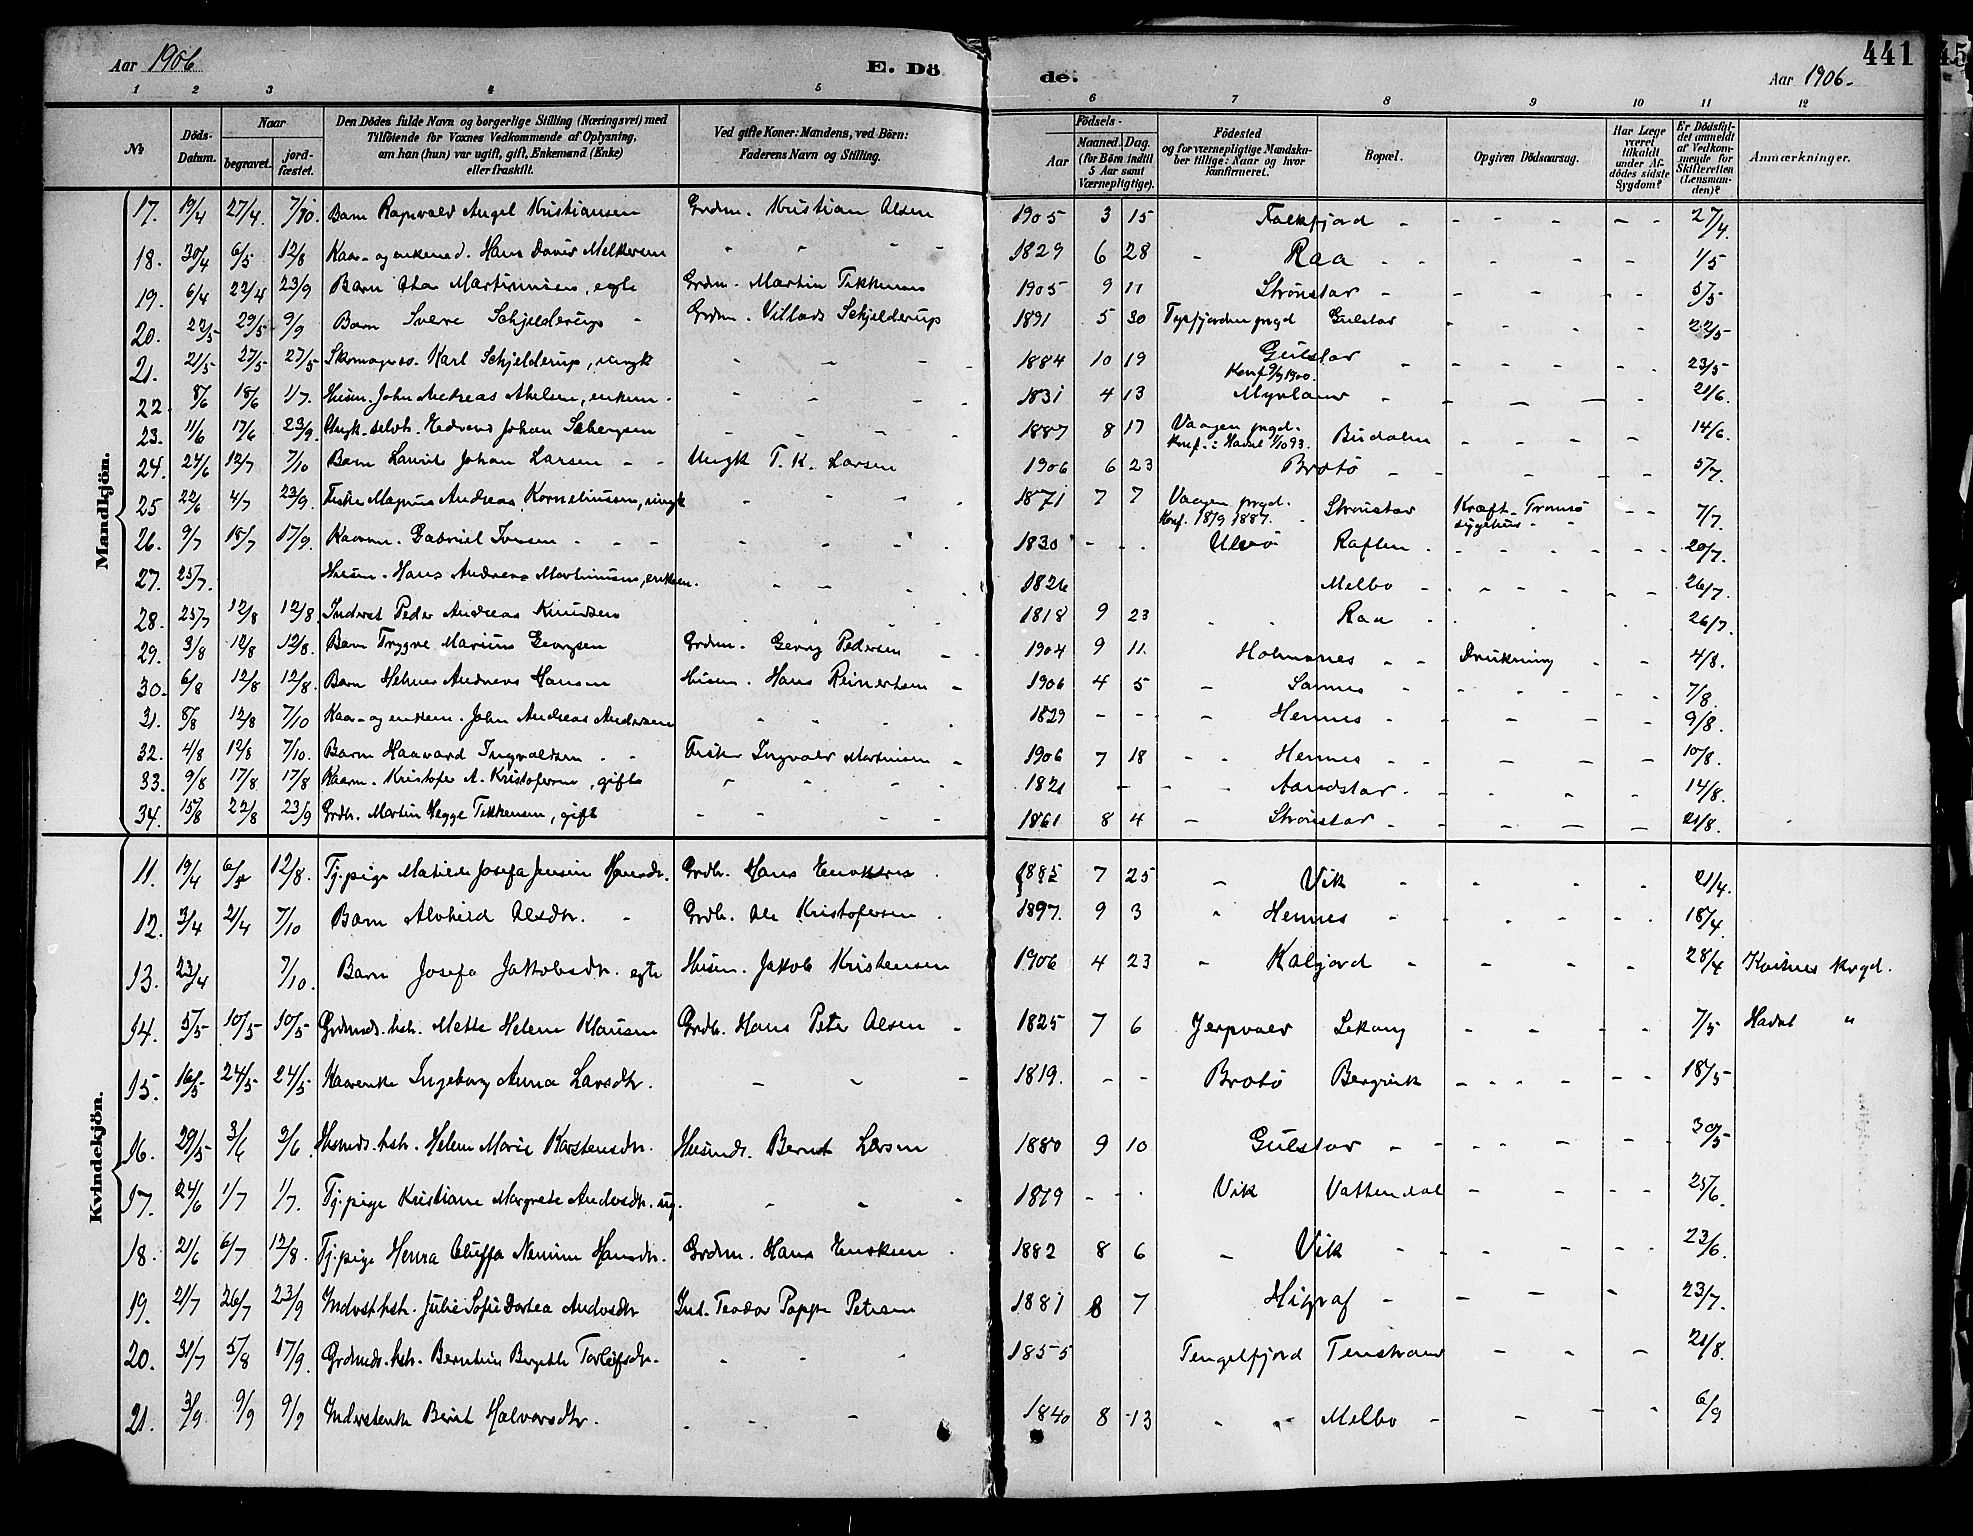 Aar 1906
E. Dö
de.
441
Aar 1906.
1 2 3 4 5 6 7 8 9 10 11 12
No
Döds-Datum.
Naar
begravet.
jord-fæstet.
Den Dödes fulde Navn og borgerlige Stilling (Næringsvei) med
Tilföiende for Voxnes Vedkommende af Oplysning,
om han (hun) var ugift, gift, Enkemand (Enke)
eller fraskilt.
Ved gifte Koner: Mandens, ved Börn:
Faderens Navn og Stilling.
Födsels-
Aar
Maaned. Dag.
(for Börn indtil
5 Aar samt
Værnepligtige).
Födested
og for værnepligtige Mandska-
ber tillige: Naar og hvor
konfirmeret.
Bopæl.
Opgiven Dödsaarsag.
Har Læge
været
tilkaldt
under Af-
dödes sidste
Sygdom?
Er Dödsfal-
det anmeldt
af Vedkom-
mende for
Skifteretten
(Lensman-
den)?
Anmærkninger.
Mandkjön.
17. 19/4 27/4 7/10 Barn Kristiansen Grdm. Kristian Olsen 1905 3 15 Falkfjord 27/4.
18. 30/4 6/5 12/8 Kaar- og enkemd. Hans Melkersen 1829 6 28 Raa 1/5
19. 6/4 22/4 23/9 Barn Martinusen, egte Grdm. Martin Tekkensen 1905 9 11 Strönstad 5/5
20. 22/5 29/5 9/9 Barn Sverre Schjelderup Grdm. Villads Schjelderup 1891 5 30 Tysfjorden prgd Gulstad 22/5
21. 21/5 27/5 27/5 Karl Schjelderup, ungk 1884 10 19 Gulstad Konf. 9/9 1900. 23/5
22. 8/6 18/6 1/7. Husm. John Andreas Abelsen, enkem. 1831 4 13 Myrland 21/6.
23. 11/6 17/6 23/9. Ungk. Johan 1887 8 17 Vaagen prgd. Konf. i Hadsel Budalen 14/6.
24. 24/6 12/7 7/10 Barn Laurits Johan Larsen Ungk T. K. Larsen 1906 6 23 Brotö 5/7.
25 22/6 4/7 23/9. Fisker Magnus Andreas Korneliussen, ungk 1871 7 7 Vaagen prgd. Konf. 18/9 1887. Strönstad Kræft - Tromsö sygehus 7/7.
26. 9/7 18/7 17/9. Kaarm. Gabriel Iversen 1830 Ulvö Raften 20/7.
27. 25/7. Husm. Hans Andreas Martinusen, enkem. 1826 Melbo 26/7.
28. 25/7 12/8 12/8. Inderst Peder Andreas Knudsen 1818 9 23 Raa 26/7.
29. 3/8 12/8 12/8. Barn Trygve Marius Georgsen Grdm. Georg Pedersen 1904 9 11. Holmsnes Drukning 4/8.
30. 6/8 12/8 12/8. Barn Helmer Andreas Hansen Husm. Hans Reinertsen 1906 4 5 Sannes 7/8.
31. 8/8 12/8 7/10 Kaar- og enkem. John Andreas Andersen 1829 Hennes 9/8.
32. 4/8 12/8 7/10. Barn Haavard Ingvaldsen Fisker Ingvald Martinsen 1906 7 18 Hennes 10/8.
33. 9/8 17/8 17/8 Kaarm. Kristofer A. Kristofersen, gift 1821 Sandstad 14/8.
34. 15/8 22/8 23/9 Grdb. Martin Hegge Tekkensen, gift 1861 8 4 Strönstad 21/8.
Kvindekjön.
11. 19/4 6/5 12/8. Tj.pige Matilde Josefa Jensine Hansdr. Grdb. Hans Eriksen 1885 7 25 Vik 21/4.
12. 3/4 21/4 7/10 Barn Alvhild Olsdr. Grdb. Ole Kristofersen 1897. 9 3 Hennes 18/4
13. 23/4 7/10. Barn Josefa Jakobsdr. egte Husm. Jakob Kristensen 1906 4 23 Kaljord 28/4 Kvitnes kvgd.
14. 5/5 10/5 10/5 Grdmds. hstr. Mette Helene Klausen Grdb. Hans Peter Olsen 1825 7 6 Jerpvold Lekang 7/5 Hadsel "
15. 16/5 24/5 24/5 Kaarenke Ingeborg Anna Larsdtr. 1819. Brotö Bergvik 18/5
16. 29/5 3/6 3/6. Husmds. hstr. Helene Marie Karstensdtr. Husmds. Bernt Larsen 1880 9 10 Gulstad 30/5
17. 24/6 1/7 1/7. Tj.pige Kristiane Margrete Andersdtr. ug. 1879 Vik Vattendal 25/6.
18. 21/6 6/7 12/8. Tj.pige Henra Nannine Hansdtr. Grdm. Hans Eriksen 1882 8 6 Vik 23/6.
19. 21/7 26/7 23/9 Inderst hstr. Julie Sofie Dortea Andersdtr Ind. Teodor Poppe Petersen 1881 8 7 Higraf 23/7.
20. 31/7 5/8 17/9. Grdmds. hstr. Berntine Bergitte Torleifsdtr. 1855 Tengelfjord Tenstrand 21/8.
21. 3/9. 9/9 9/9 Inderstenke Berit Halvorsdtr. 1840 8 13 Melbo 6/9